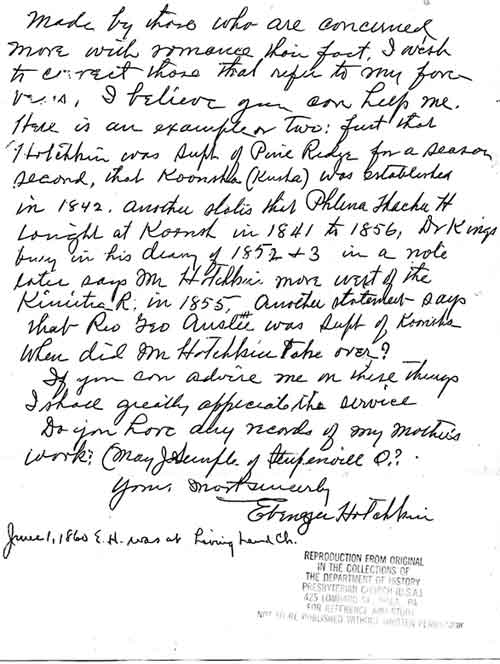 Made by those who are concerned
more with romance than fact, I wish
to correct those that refer to my fore
I believe you can help me.
Here is an example or two: first that
Hotchkin was Supt of Pine Ridge for a season
second, that Koonsha (Kusha) was established
in 1842. Another states that Philena Thacher H
taught at Koonsh in 1841 to 1856, Dr Kings
bury in his diary of 1852 + 3 in a note
later says Mr Hotchkin more west of the
R. in 1855, Another statement says
that Rev Geo Austin was Supt of
When did Mr Hotchkin take over?
If you can advise me on these things
I shall greatly appreciate the service
Do you have any records of my mother's
work? (May J Semple of Steubenville O.?
Yours most sincerely
Ebenezer Hotchkin
June 1, 1860 E. H. was at Living Land Ch.
REPRODUCTION FROM ORIGINAL
IN THE COLLECTIONS OF
THE DEPARTMENT OF HISTORY
PRESBYTERIAN CHURCH (U.S.A.)
425 LOMBARD ST., PHILA., PA
FOR REFERENCE AND STUDY
NOT TO BE PUBLISHED WITHOUT WRITTEN PERMISSION